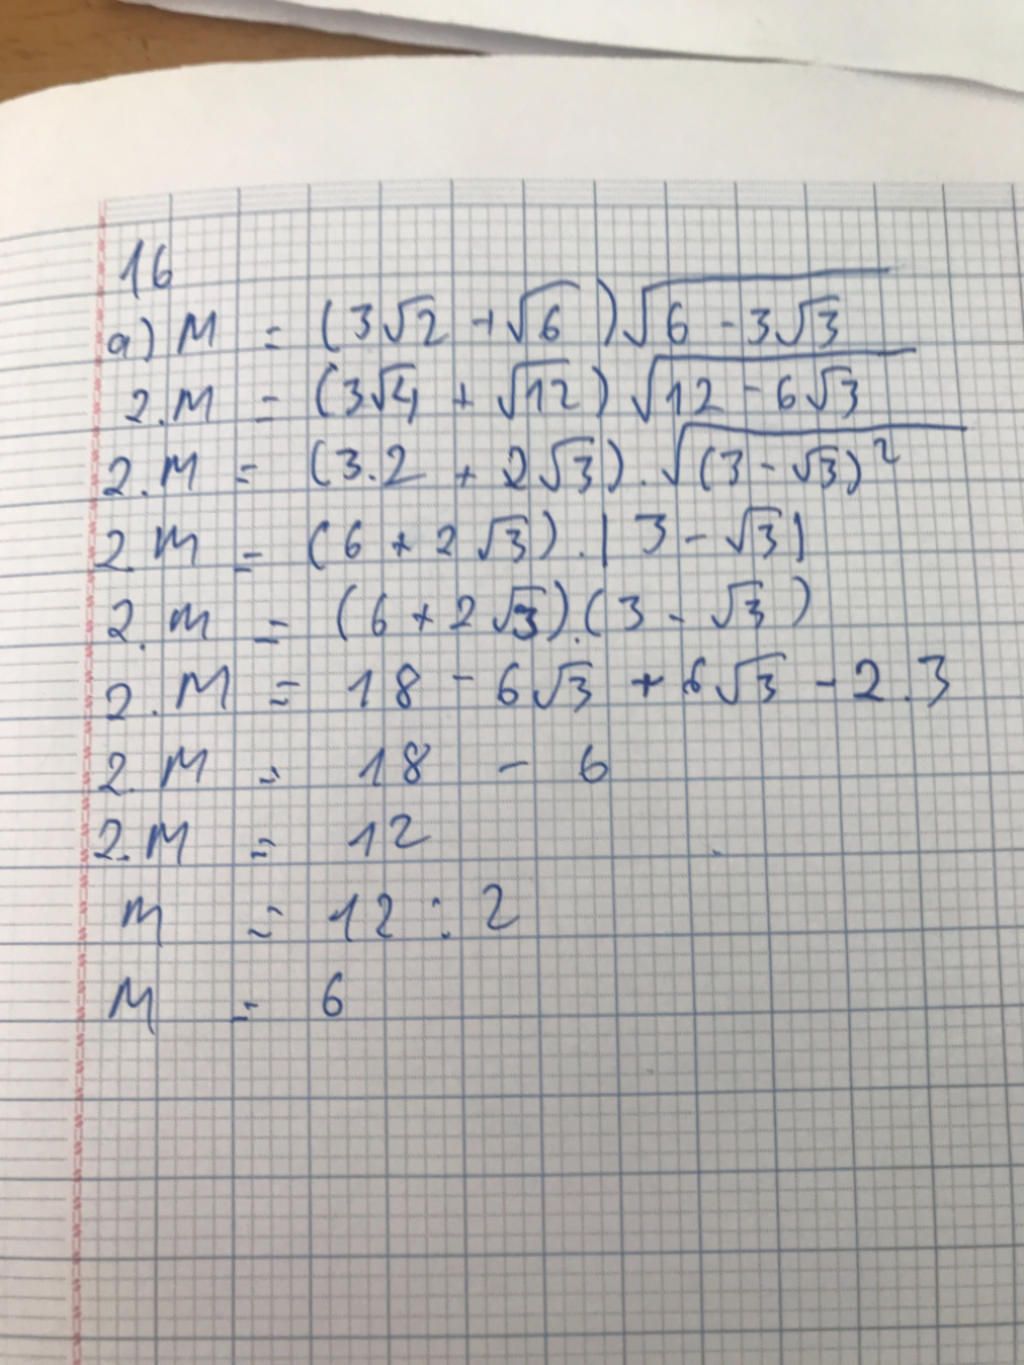 16
a) M = (3√2 + √6)√(6 - 3√3)
2.M = (3√4 + √12)√(12 - 6√3)
2.M = (3.2 + 2√3).√((3 - √3)²)
2.M = (6 + 2√3).|3 - √3|
2.M = (6 + 2√3).(3 - √3)
2.M = 18 - 6√3 + 6√3 - 2.3
2.M = 18 - 6
2.M = 12
M = 12 : 2
M = 6